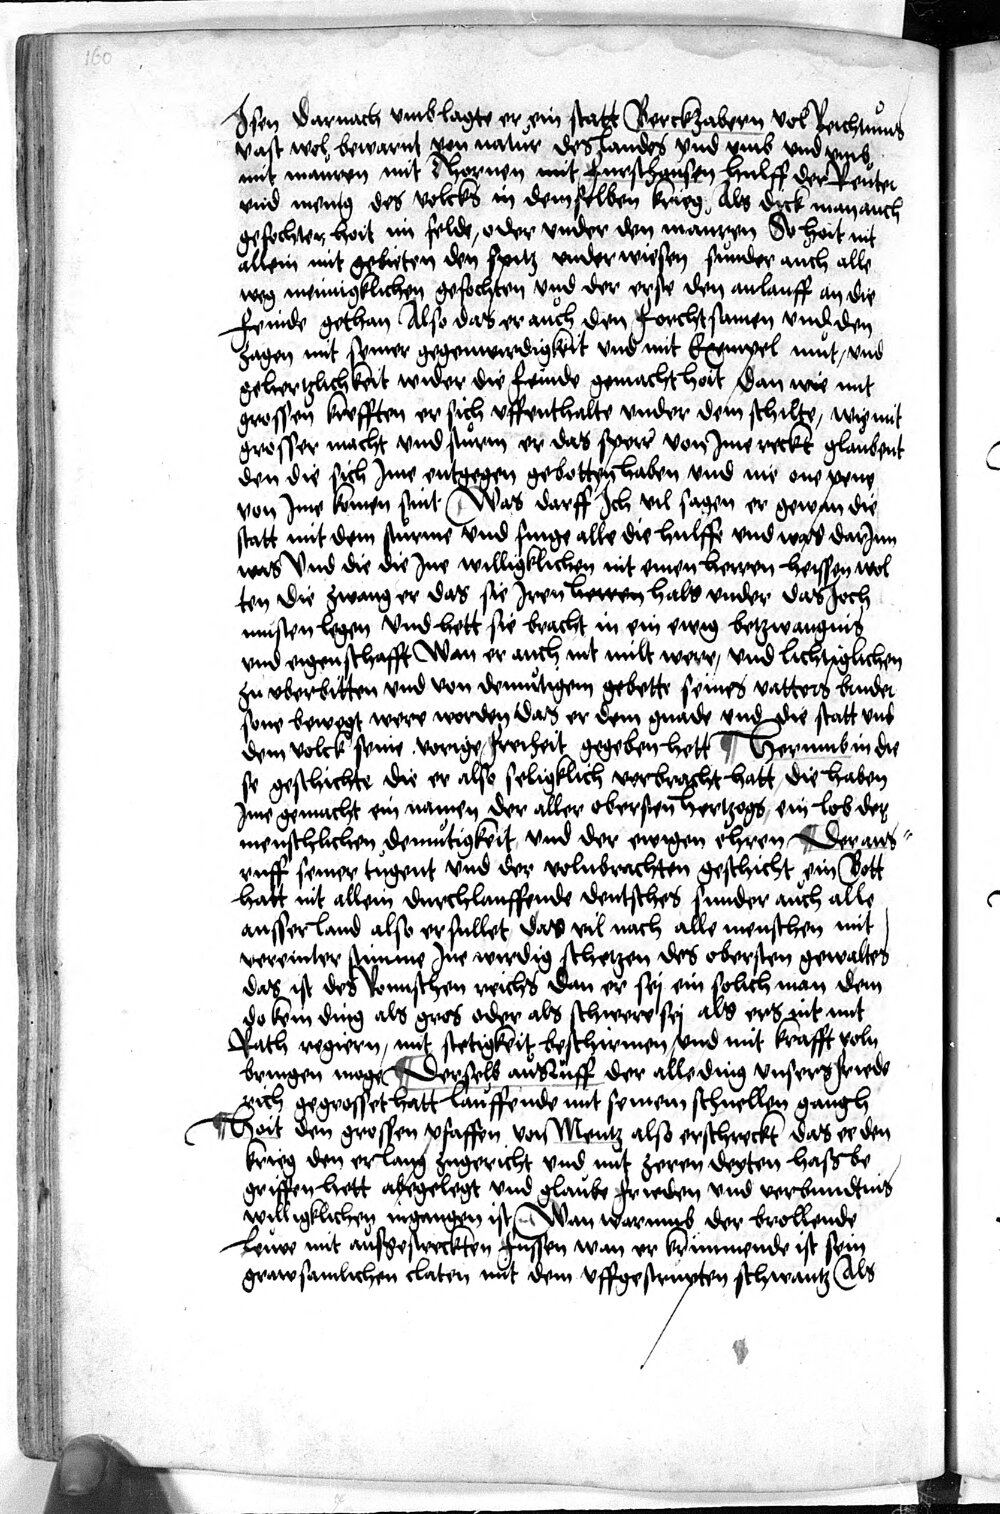 160
Jsen Darnach vmblagte er ein statt Berckzabern vol Reichtums
vast wol bewarnt von natur des landes vnd vmb vnd vmb
mit mauren mit Thornen mit hulff der Reuter
vnd menig des volcks in demselben krieg, Als dick man auch
gefochten hoit im felde, oder vnder den mauren So hoit nit
allein mit gebieten den spitz vnderwiesen sunder auch alle
weg mennigklichen gefochten vnd der erste den anlauff an die
feinde gethan Also das er auch den forchtsamen vnd den
zagen mit seiner gegenwirdigkeit vnd mit Exempel mut, vnd
gehertzlichkeit wider die feinde gemacht hoit Dan wie mit
grossen krefften er sich vffenthalte vnder dem schilte, wie mit
grosser macht vnd sturm er das sperr von Jme reckt glaubent
den die sich Jme entgegen gebotten haben vnd nie one pene
von Jme komen sint Was darff Jch vil sagen er gewan die
statt mit dem sturme vnd finge alle die hulffe vnd was darJnn
was Vnd die die Jne willigklichen nit einen herren heissen wol
ten die zwang er das sie Jren herren hals vnder das Joch
musten legen Vnd hett sie bracht in ein ewig betzwangnis
vnd eigenschafft Wan er auch nit milt were, vnd lichtiglichen
zu vberbitten vnd von demutigem gebette seines vatters bruder
sone bewegt were worden das er dem gnade vnd die statt vnd
dem volck seine vorige freiheit gegeben hett Hervmb in die
se geschichte die er also seligklich verbracht hatt die haben
Jme gemacht ein namen der aller obersten hertzogs ein lob der
menschlichen demutigkeit, vnd der ewigen ehren Der aus
ruff seiner tugent vnd der volnbrachten geschicht ein Bott
hatt nit allein durchlauffende deutsches sunder auch alle
ausser land also erfullet das vil nach alle menschen mit
vereinter stimme Jne wirdig schetzen des obersten gewaltes
das ist des Romischen reichs dan er sej ein solich man dem
do kein ding als gros oder als schwere sej als ers nit mit
Rath regiern, mit stetigkeit beschirmen, vnd mit krafft voln
bringen moge Derselb ausruff der alle ding vnsers friede
rich gegrosset hatt lauffende mit seinem schnellen gangh
Hoit den grossen pfaffen von Mentz also erschreckt das er den
krieg den er lang zugericht vnd mit hass be
griffen hett abegelegt vnd glaube frieden vnd verbundtnis
willigklichen ingangen ist Wan warumb der brollende
leuwe mit aufgestreckten fussen wan er krimmende ist sein
grawsamlichen claten mit dem vffgestrupten schwantz Als